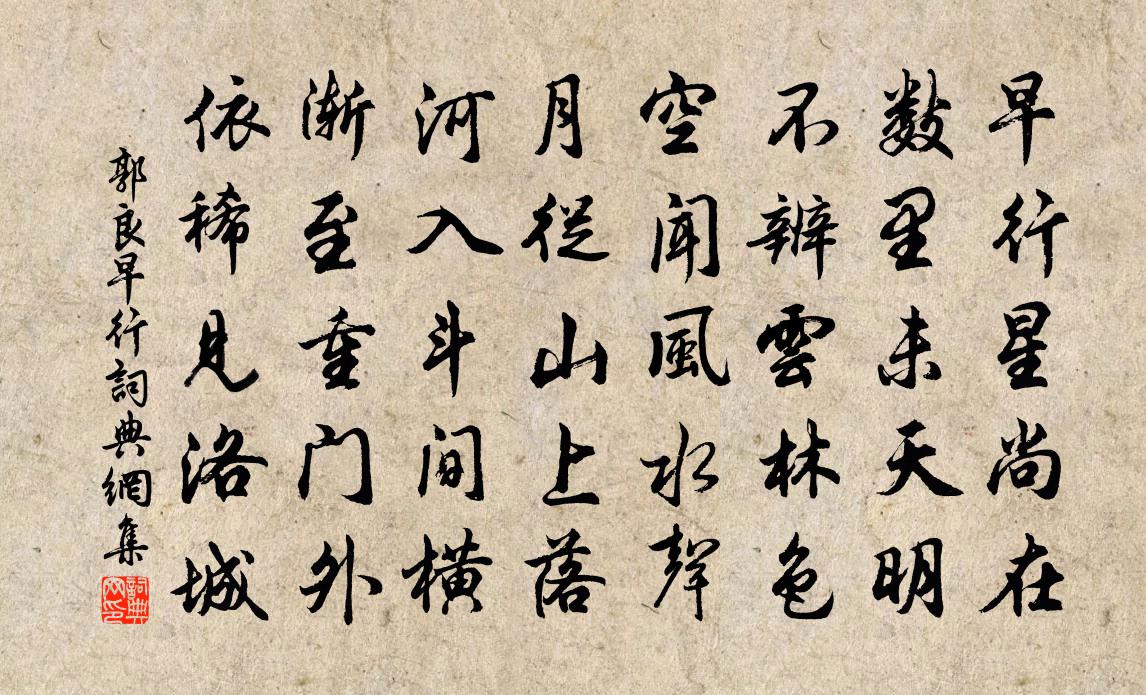 早行星尚在
數里未天明
不辨雲林色
空聞風水聲
月從山上落
河入斗間橫
漸至重门外
依稀見洛城
郭良早行詞典網集
詞典
网印